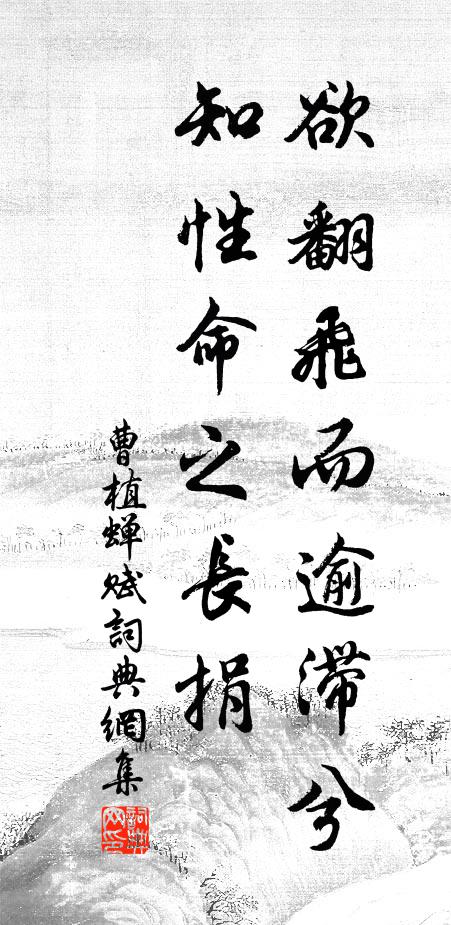 欲翻飛而逾滯兮
知性命之長捐
曹植蟬賦詞典網集